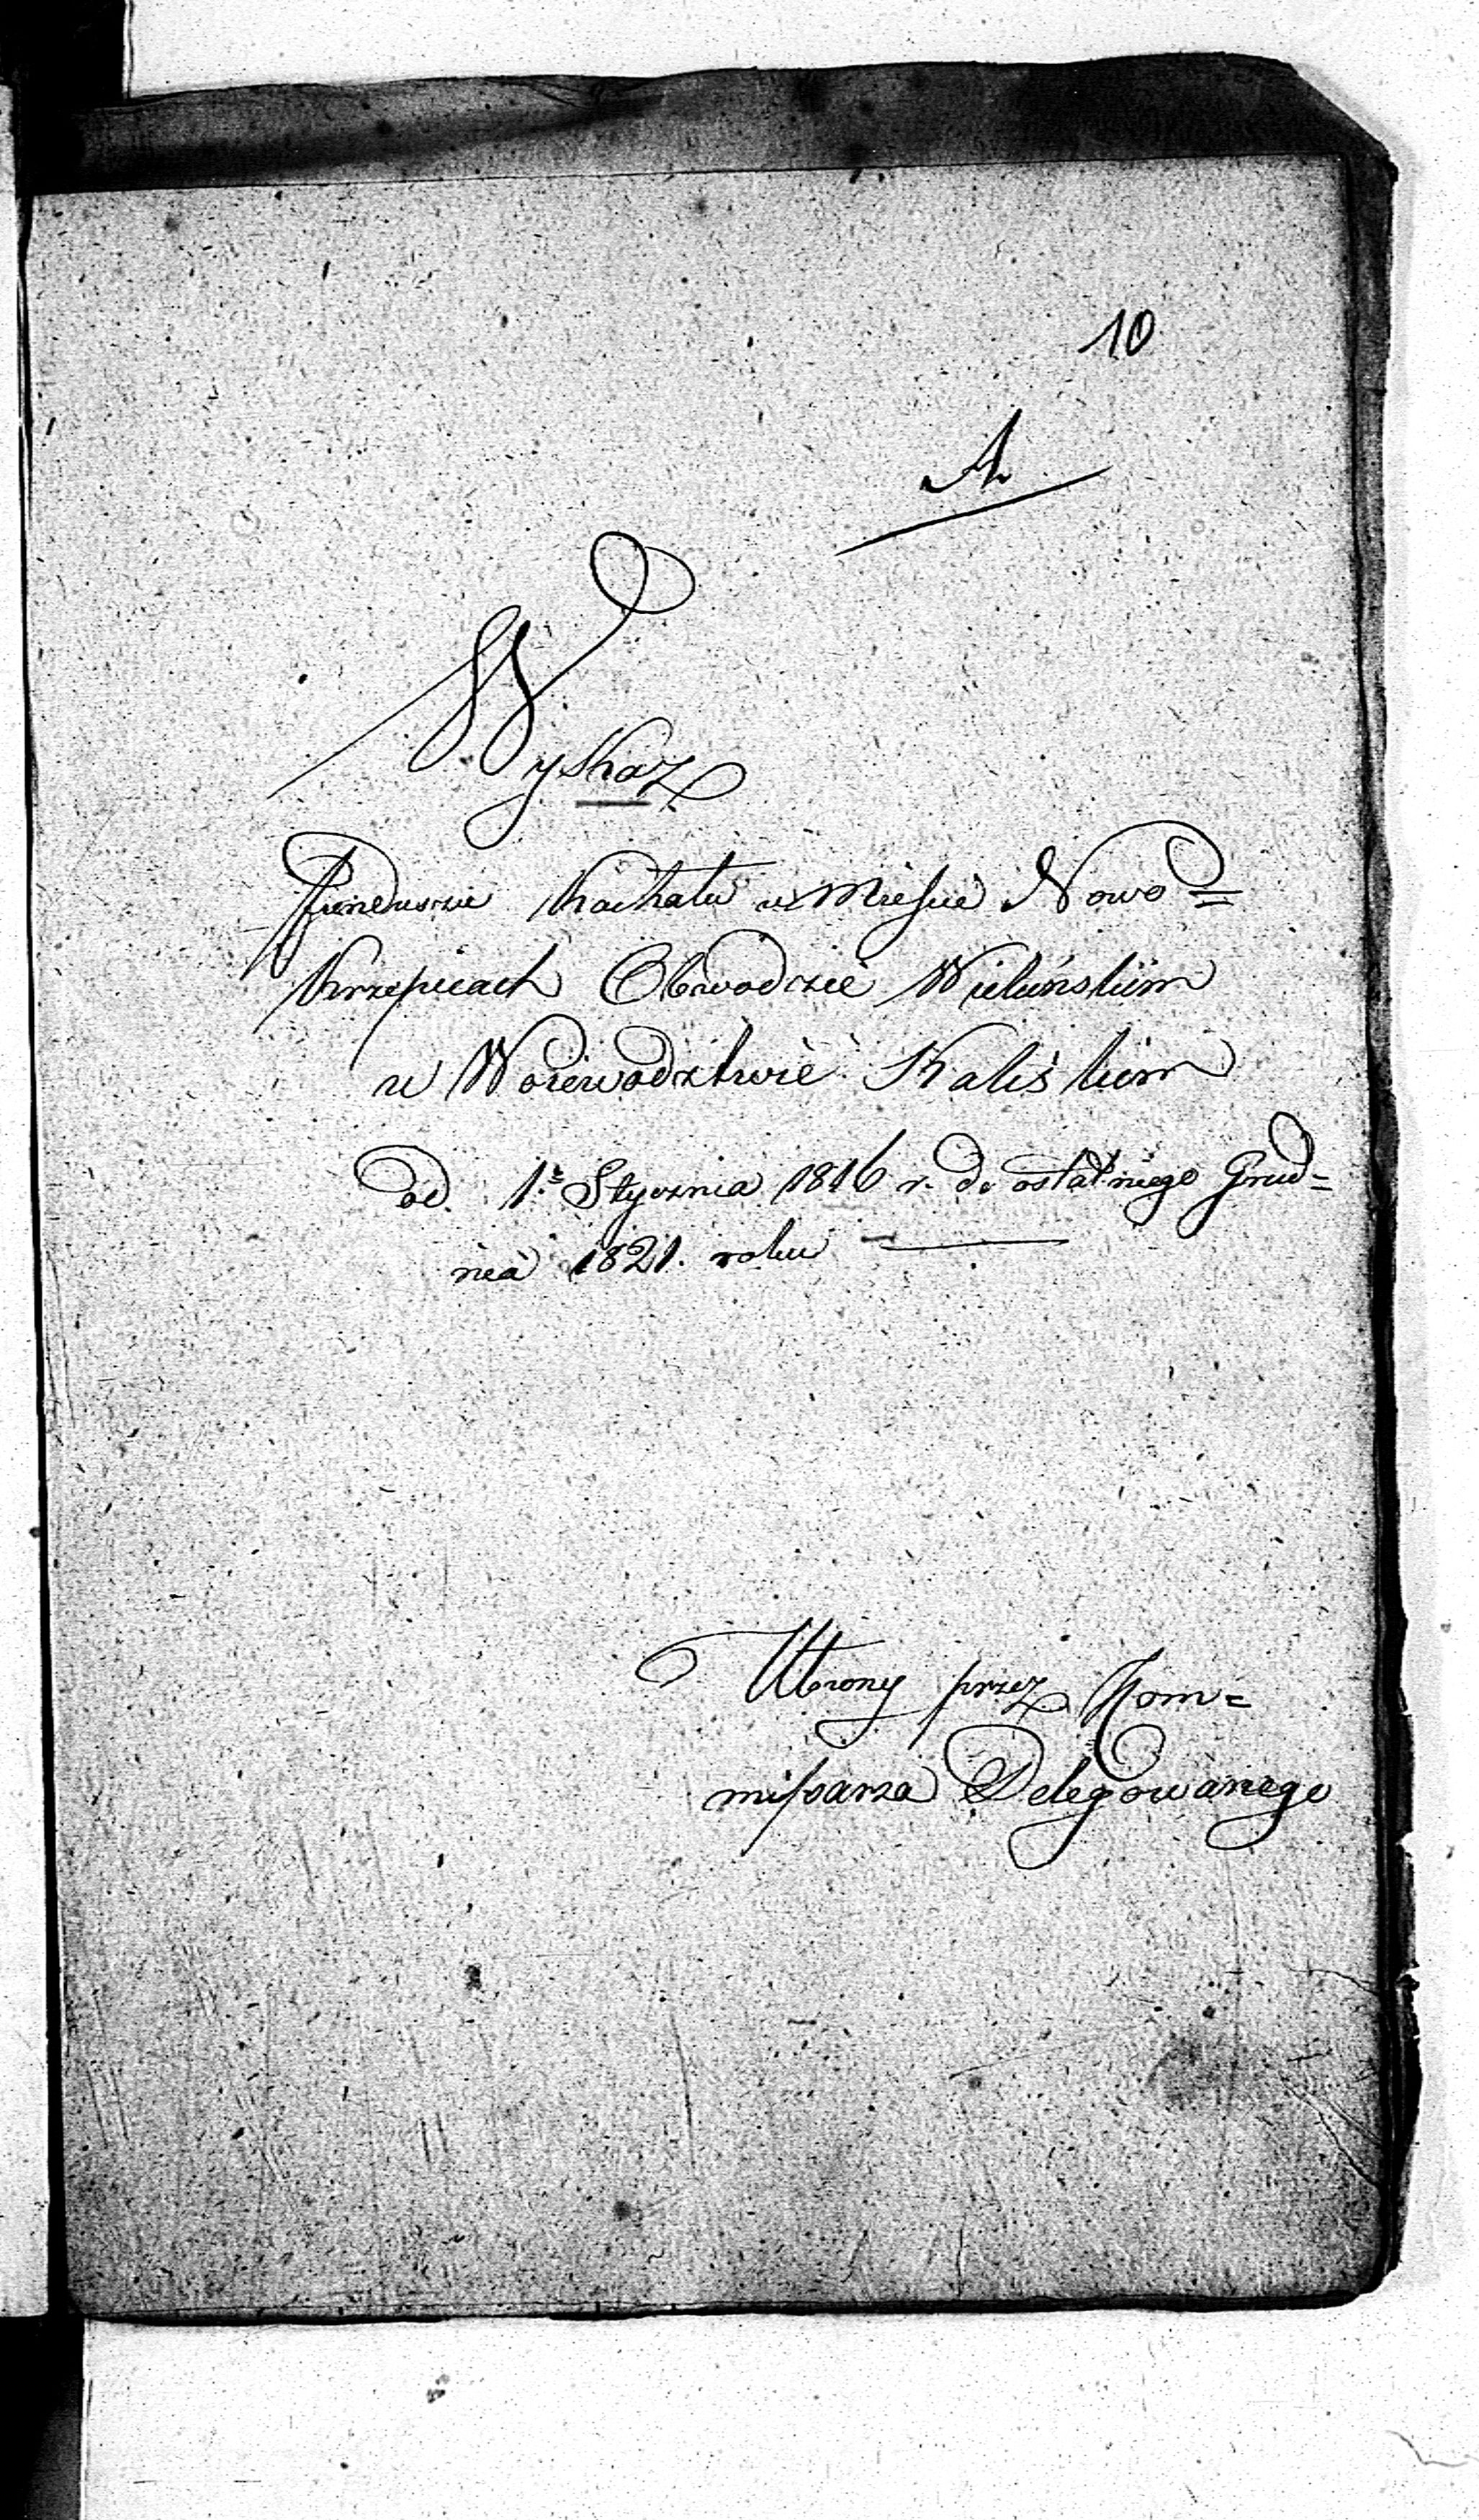 10
A.
Wykaz
Funduszu Kachału w Mieście Nowo=
Krzepicach Obwodzie Wieluńskiim
w Woiewodztwie Kaliskiim
od 1.º Stycznia 1816 r. do ostatniego Grud=
nia 1821. roku
przez Kom=
missarza Delegowanego